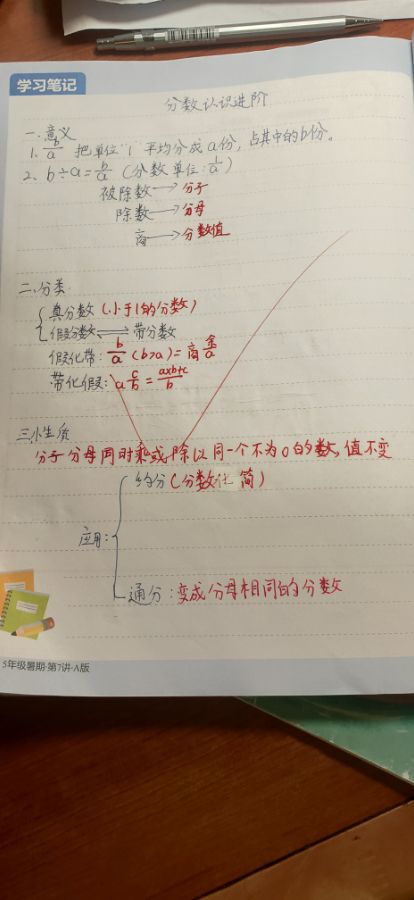 学习笔记
分数认识进阶
一.意义
1. b/a 把单位"1"平均分成a份,占其中的b份。
2、b÷a=b/a (分数单位:1/a)
被除数→分子
除数→分母
商→分数值
二.分类
真分数(小于1的分数)
假分数⇌带分数
假化带:b/a(b>a)=商余/a
带化假:a c/b=a×b+c/b
三.性质
分子分母同时乘或除以同一个不为0的数,值不变
约分(分数化简)
应用:
通分:变成分母相同的分数
5年级暑期·第7讲·A版